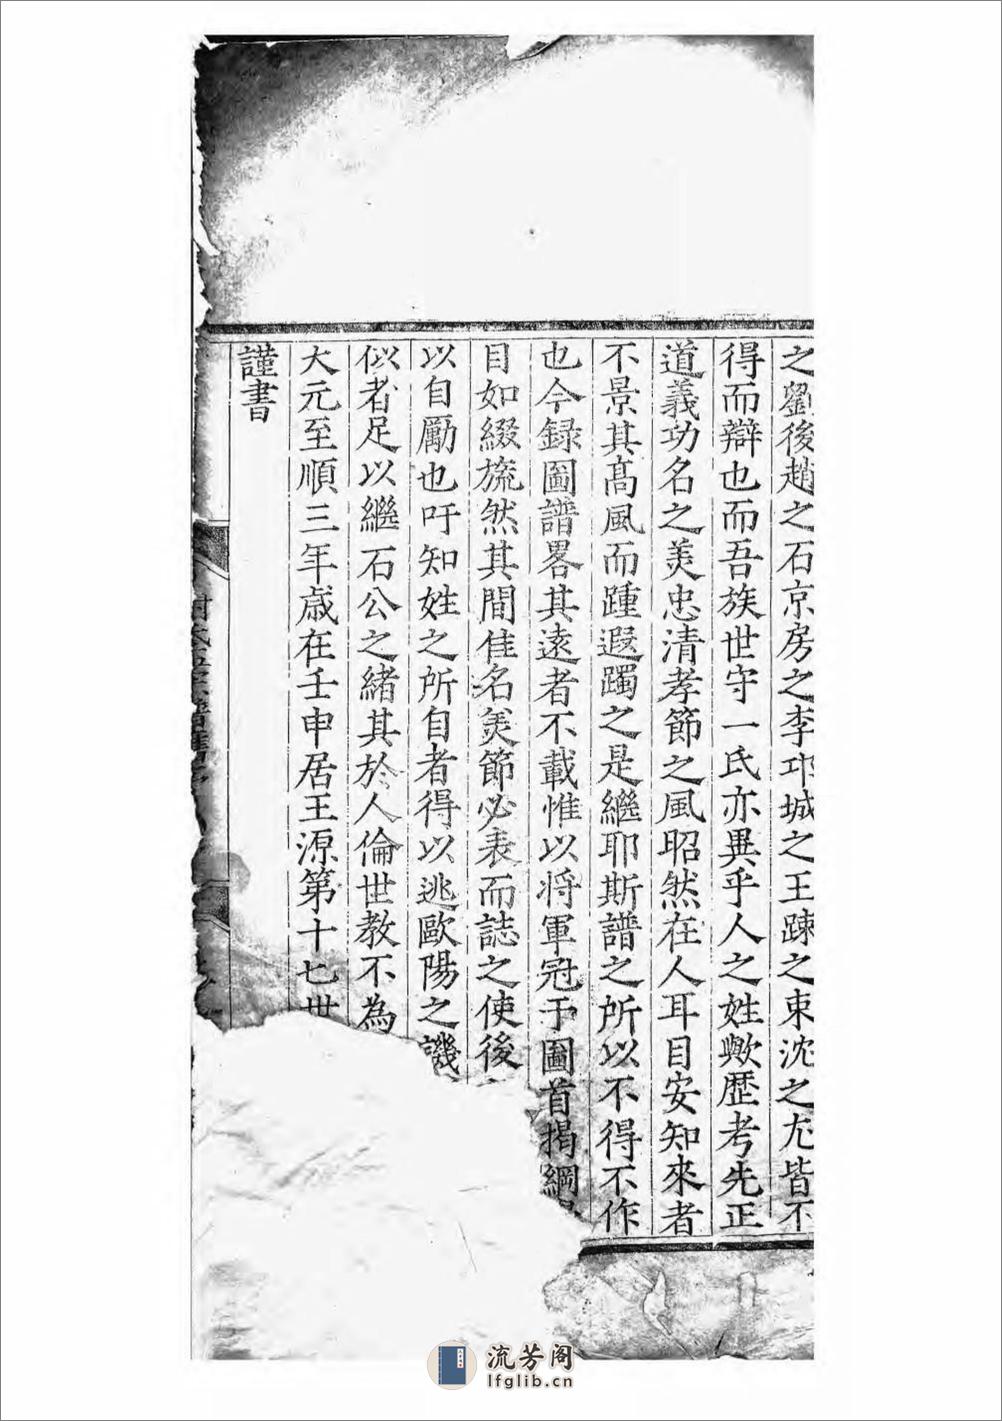 之劉後趙之石京房之李邛城之王踈之束沈之尢皆不
得而辯也而吾族世守一氏亦異乎人之姓歟歴考先正
道義功名之美忠清孝節之風昭然在人耳目安知來者
不景其髙風而踵遐躅之是繼耶斯譜之所以不得不作
也今録圖譜畧其遠者不載惟以将軍冠于圖首掲綱
目如綴旒然其間佳名美節必表而誌之使後
以自勵也吁知姓之所自者得以逃歐陽之譏
似者足以繼石公之緒其於人倫世教不為
大元至順三年歳在壬申居王源第十七世
謹書
流芳阁
lfglib.cn